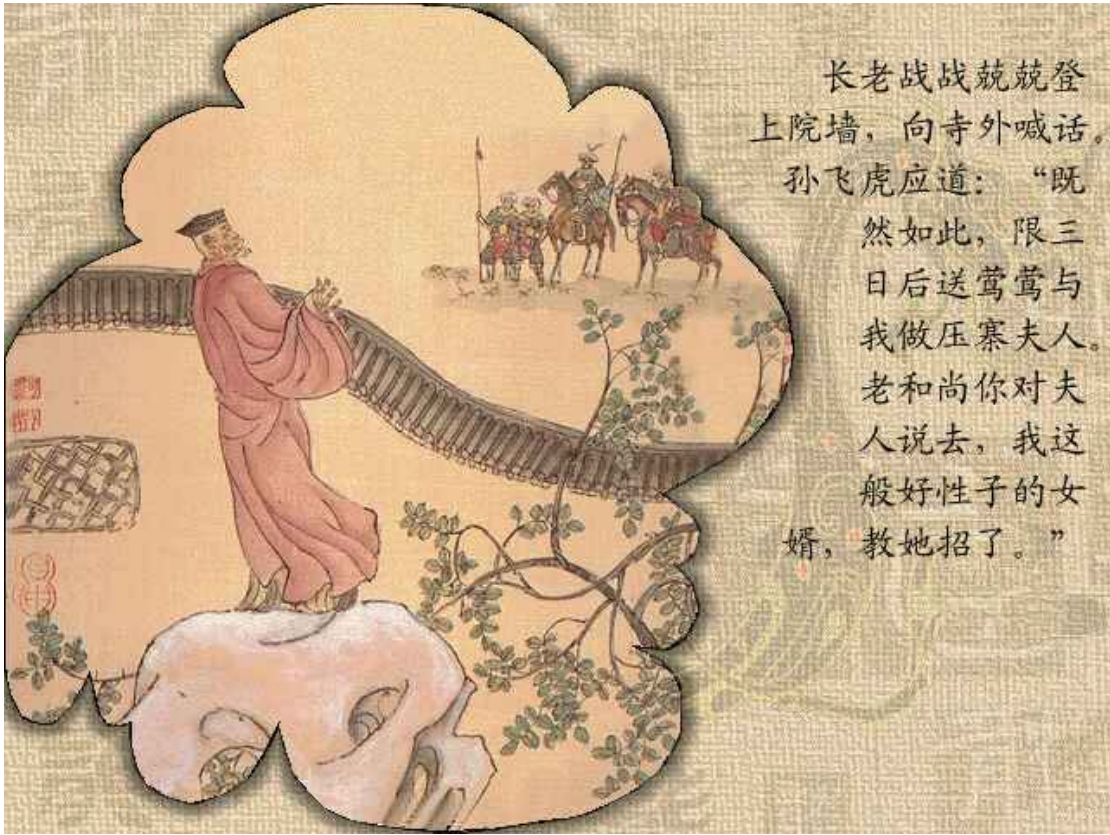 长老战战兢兢登
上院墙，向寺外喊话。
孙飞虎应道：“既
然如此，限三
日后送莺莺与
我做压寨夫人。
老和尚你对夫
人说去，我这
般好性子的女
婿，教她招了。”